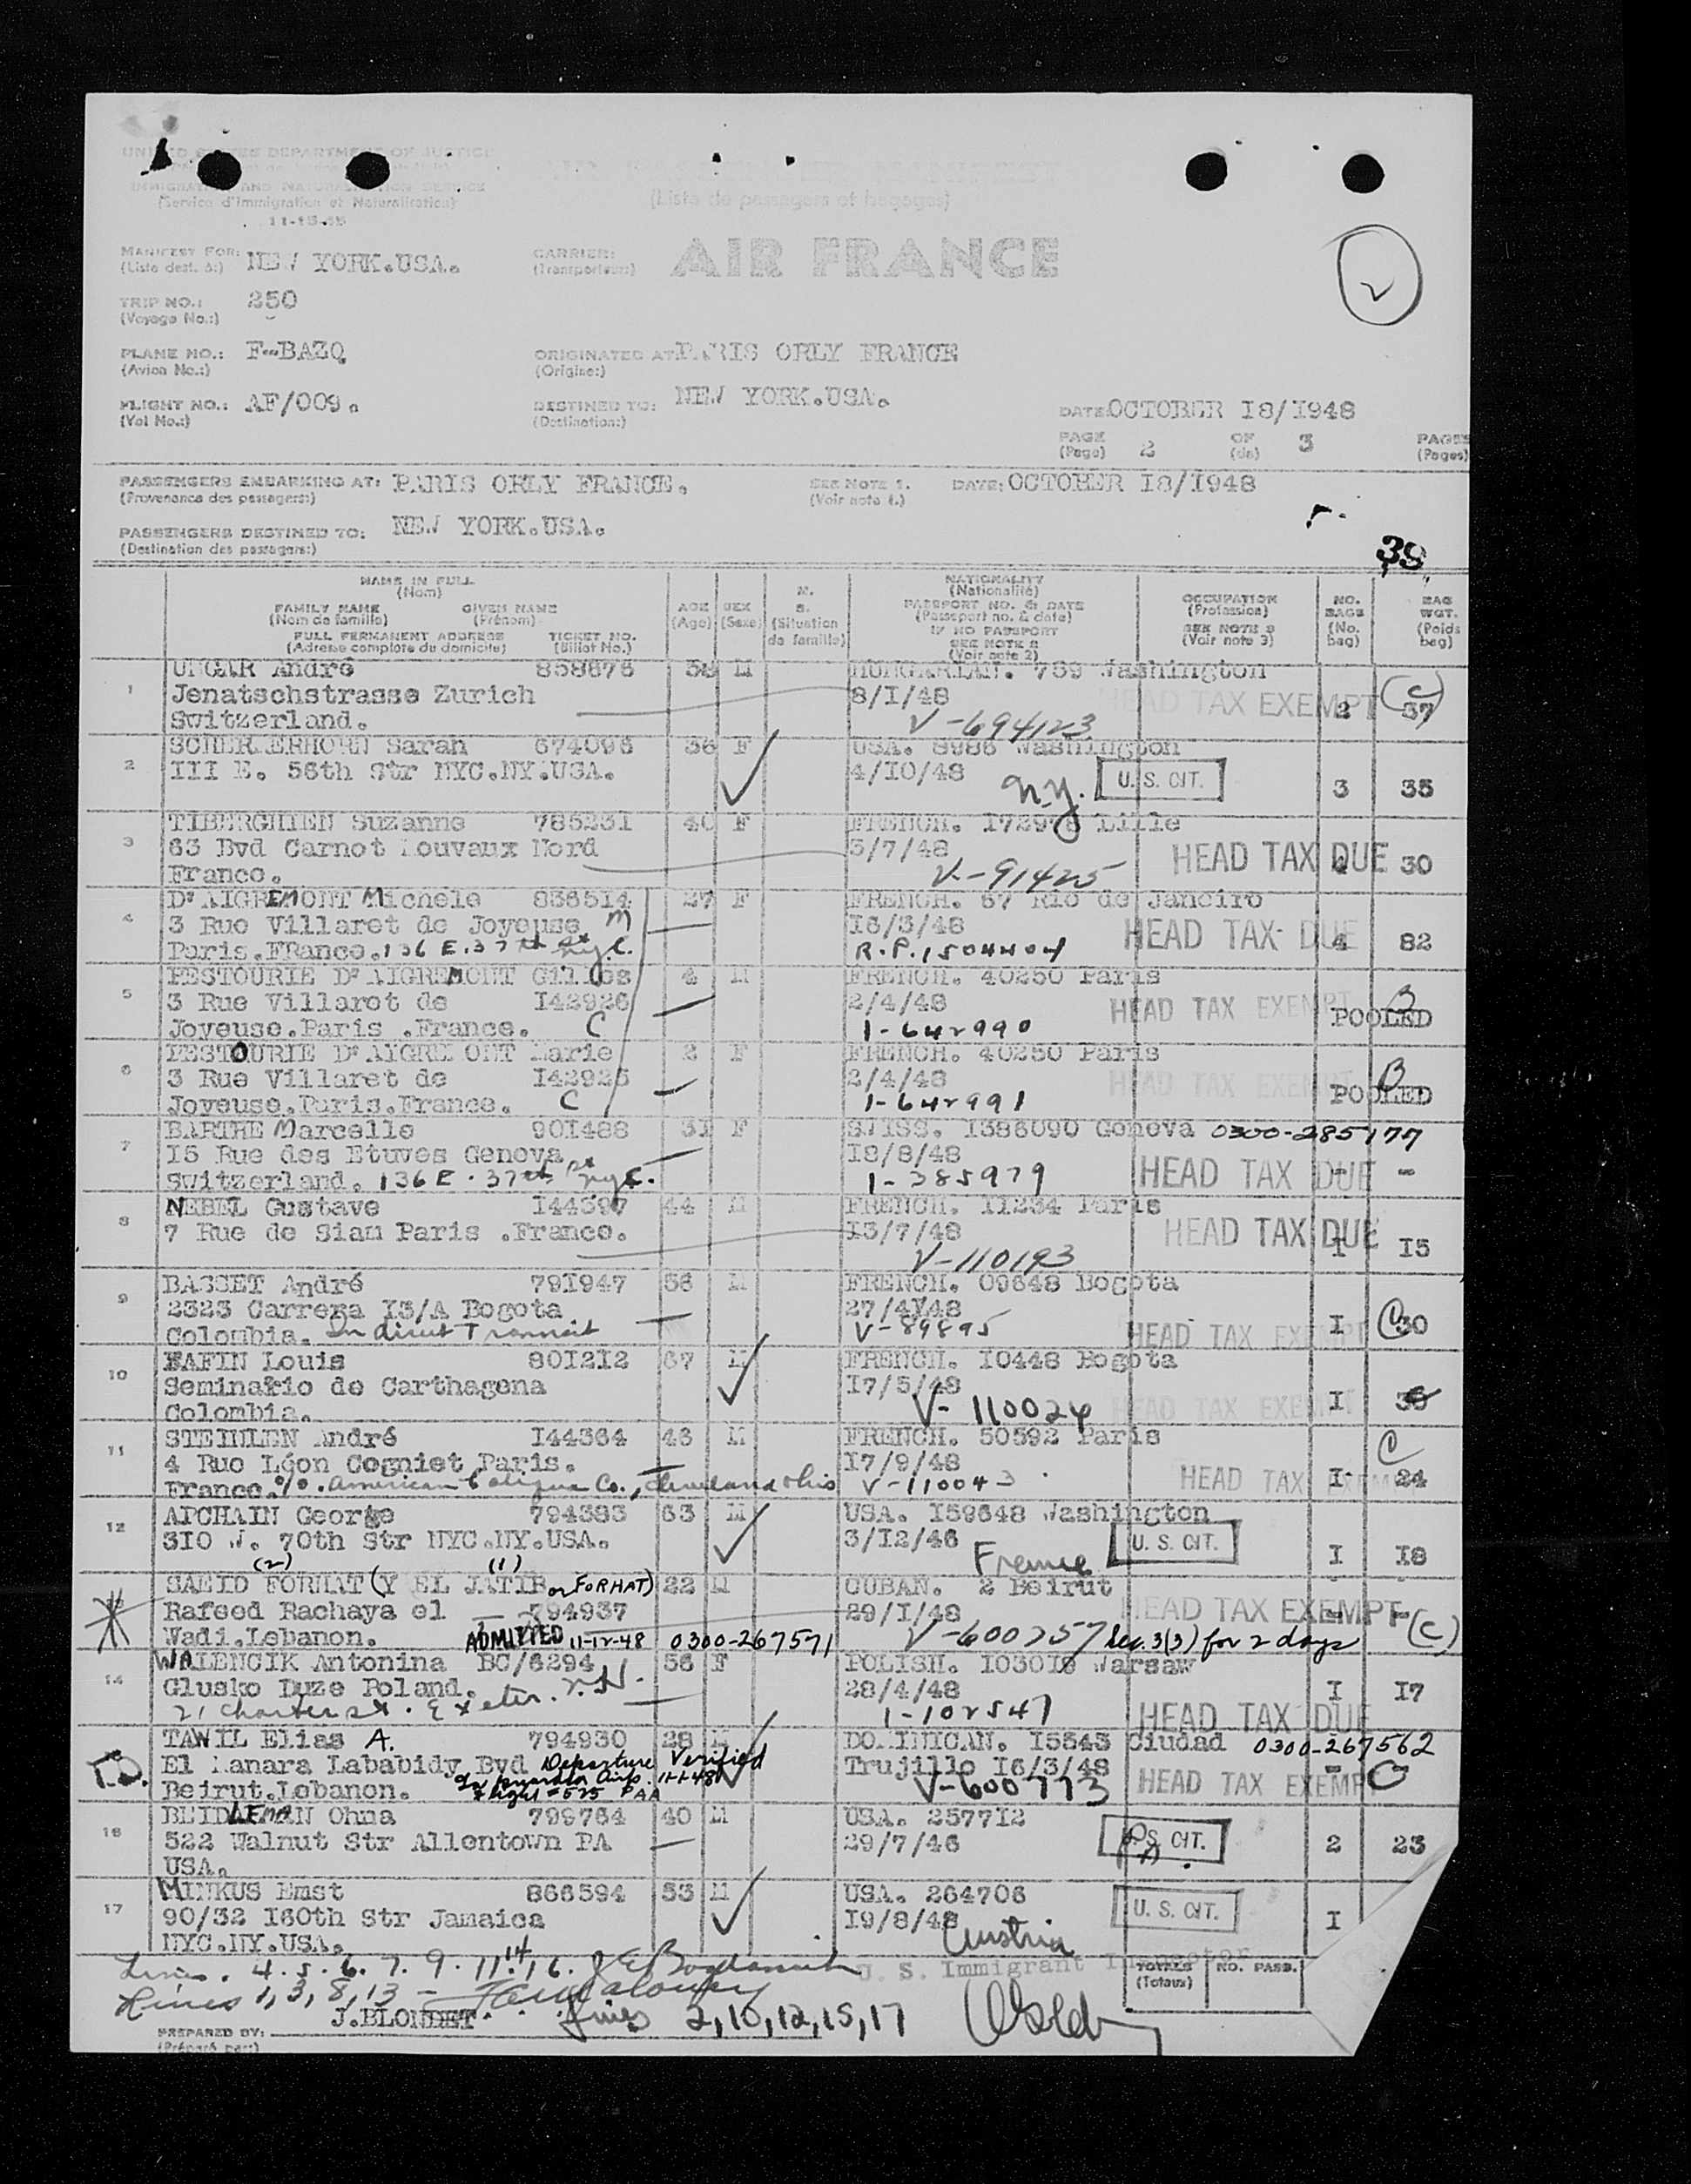 UNITED STATES DEPARTMENT OF JUSTICE
IMMIGRATION AND NATURALIZATION SERVICE
(Service d'Immigration et Naturalisation)
11-15-45
(Liste de passagers et bagages)
MANIFEST FOR: NEW YORK.USA.
(Liste dest. à:)
CARRIER: AIR FRANCE
(Transporteur:)
2
TRIP NO.: 250
(Voyage No.:)
PLANE NO.: F-BAZQ
(Avion No.:)
ORIGINATED AT: PARIS ORLY FRANCE
(Origine:)
FLIGHT NO.: AF/009.
(Vol No.:)
DESTINED TO: NEW YORK.USA.
(Destination:)
DATE: OCTOBER I8/I948
PAGE 2 OF 3 PAGES
(Page) (de) (Pages)
PASSENGERS EMBARKING AT: PARIS ORLY FRANCE.
(Provenance des passagers:)
SEE NOTE 1. DATE: OCTOBER I8/I948
(Voir note 1.)
PASSENGERS DESTINED TO: NEW YORK.USA.
(Destination des passagers:)
39
NAME IN FULL
(Nom)
FAMILY NAME GIVEN NAME
(Nom de famille) (Prénom)
FULL PERMANENT ADDRESS TICKET NO.
(Adresse complete du domicile) (Billet No.)
AGE
(Age)
SEX
(Sexe)
M.
S.
(Situation
de famille)
NATIONALITY
(Nationalité)
PASSPORT NO. & DATE
(Passeport no. & date)
IF NO PASSPORT
SEE NOTE 2
(Voir note 2)
OCCUPATION
(Profession)
SEE NOTE 3
(Voir note 3)
NO.
BAGS
(No.
bag)
BAG
WGT.
(Poids
bag)
1 UNGAR André 858876 58 M HUNGARIAN. 759 Washington
Jenatschstrasse Zurich 8/I/48 HEAD TAX EXEMPT 2 37 (C)
Switzerland. V-694123
2 SCHERMERHORN Sarah 674096 36 F USA. 8986 Washington
III E. 56th Str NYC.NY.USA. 4/I0/48 N.Y. U.S. CIT. 3 35
3 TIBERGHIEN Suzanne 785231 40 F FRENCH. I72976 Lille
63 Bvd Carnot Mouvaux Nord 3/7/48 HEAD TAX DUE 30
France. V-91425
4 D'AIGREMONT Michele 836514 27 F FRENCH. 67 Rio de Janeiro
3 Rue Villaret de Joyeuse M I6/3/48 HEAD TAX DUE 4 82
Paris.FRance. 136 E. 37th St NYC. R.P. 1504404
5 PESTOURIE D'AIGREMONT Gilles 4 M FRENCH. 40250 Paris
3 Rue Villaret de I42926 2/4/48 HEAD TAX EXEMPT B POOLED
Joyeuse.Paris .France. C 1-642990
6 PESTOURIE D'AIGREMONT Marie 2 F FRENCH. 40250 Paris
3 Rue Villaret de I42925 2/4/48 HEAD TAX EXEMPT B POOLED
Joyeuse.Paris.France. C 1-642991
7 BARTHE Marcelle 90I488 31 F SWISS. I386090 Geneva 0300-285177
I5 Rue des Etuves Geneva I8/8/48 HEAD TAX DUE - -
Switzerland. 136 E. 37th St NYC. 1-385979
8 NEBEL Gustave I44397 44 M FRENCH. II234 Paris
7 Rue de Siam Paris .France. I3/7/48 HEAD TAX DUE I I5
V-110193
9 BASSET André 79I947 56 M FRENCH. 09648 Bogota
2323 Carrera I3/A Bogota 27/4/48 I 30 (C)
Colombia. In direct Transit V-89895 HEAD TAX EXEMPT
10 Louis 80I2I2 67 M FRENCH. I0448 Bogota
Seminario de Carthagena I7/5/48 I
Colombia. V-110024 HEAD TAX EXEMPT
11 STEINLEN André I44364 46 M FRENCH. 50592 Paris C
4 Rue Léon Cogniet Paris. I7/9/48 HEAD TAX EXEMPT I 24
France. %. American Co., Cleveland Ohio V-110043
12 APCHAIN George 794383 63 M USA. I59648 Washington
3I0 W. 70th Str NYC.NY.USA. 3/I2/46 France U.S. CIT. I I8
(2) (1)
SAEID FORHAT (Y EL JATIB or FORHAT) 22 M CUBAN. 2 Beirut - -
Rafeed Rachaya el 794937 29/I/48 HEAD TAX EXEMPT (C)
Wadi.Lebanon. ADMITTED 11-12-48 0300-267571 V-600757 Sec. 3(3) for 2 days
14 WALENCIK Antonina BC/6294 56 F POLISH. I030I8 Warsaw
Glusko Duze Poland. 28/4/48 I I7
21 Charter st. Exeter. N.H. 1-102547 HEAD TAX DUE
TAWIL Elias A. 794930 28 M DOMINICAN. I5543 Ciudad 0300-267562
T.D. El Manara Lababidy Bvd Departure Verified Trujillo I6/3/48 - -
Beirut.Lebanon. La Guardia Airp. 11-1-48 V-600773 HEAD TAX EXEMPT C
Flight #525 PAA
16 BEIDLEMAN Ohna 799764 40 M USA. 2577I2
522 Walnut Str Allentown PA 29/7/46 U.S. CIT. Pa. 2 23
USA.
17 MINKUS Emst 866594 53 M USA. 264706
90/32 I60th Str Jamaica I9/8/48 U.S. CIT. I
NYC.NY.USA. Austria
Lines. 4. 5. 6. 7. 9. 11. 14. 16.
U. S. Immigrant Inspector
TOTALS NO. PASS.
(Totaux)
Lines 1, 3, 8, 13 -
J.BLONDET. Lines 2,10,12,15,17
PREPARED BY:
(Préparé par:)